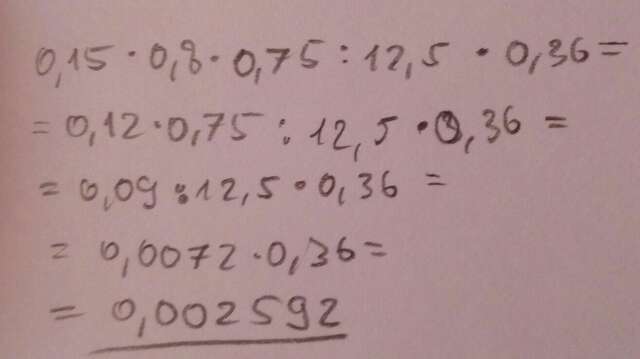 0,15 · 0,8 · 0,75 : 12,5 · 0,36 =
= 0,12 · 0,75 : 12,5 · 0,36 =
= 0,09 : 12,5 · 0,36 =
= 0,0072 · 0,36 =
= 0,002592